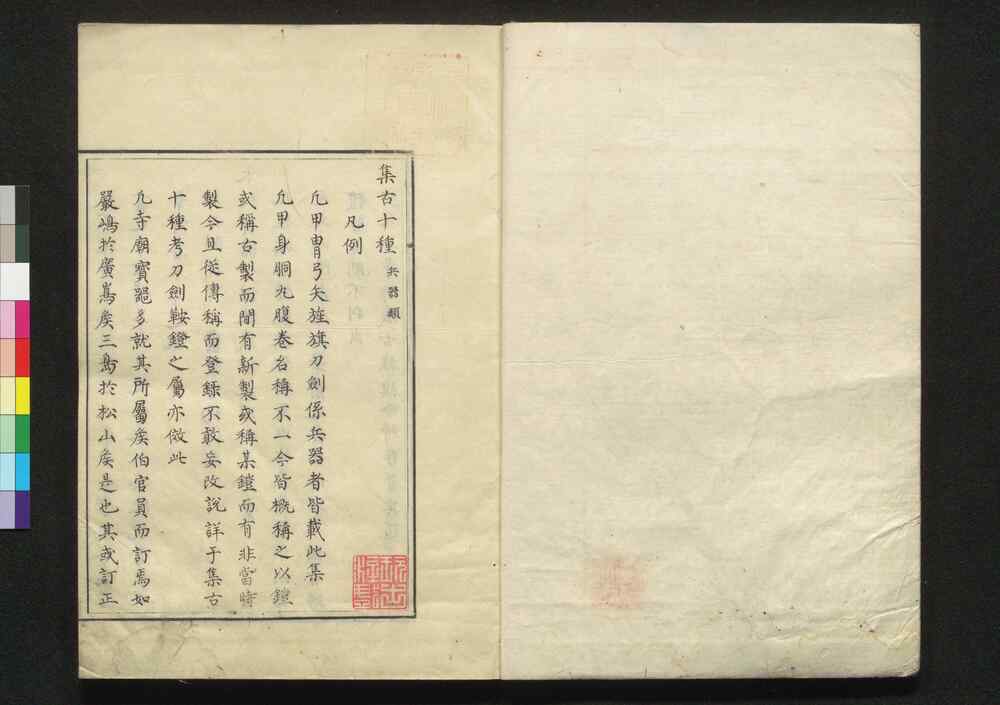 集古十種 兵器類
凢例
凢甲冑弓矢旌旗刀劍係兵器者皆載此集
凢甲身胴丸腹卷名稱不一今皆概稱之以鎧
或稱古製而間有新製或稱某鎧而有非當時
製今且從傳稱而登録不敢妄改說詳于集古
十種考刀劍鞍鐙之屬亦倣此
凢寺廟寳噐多就其所屬矦伯官員而訂焉如
嚴嶋於廣嶌矦三島於松山矦是也其或訂正